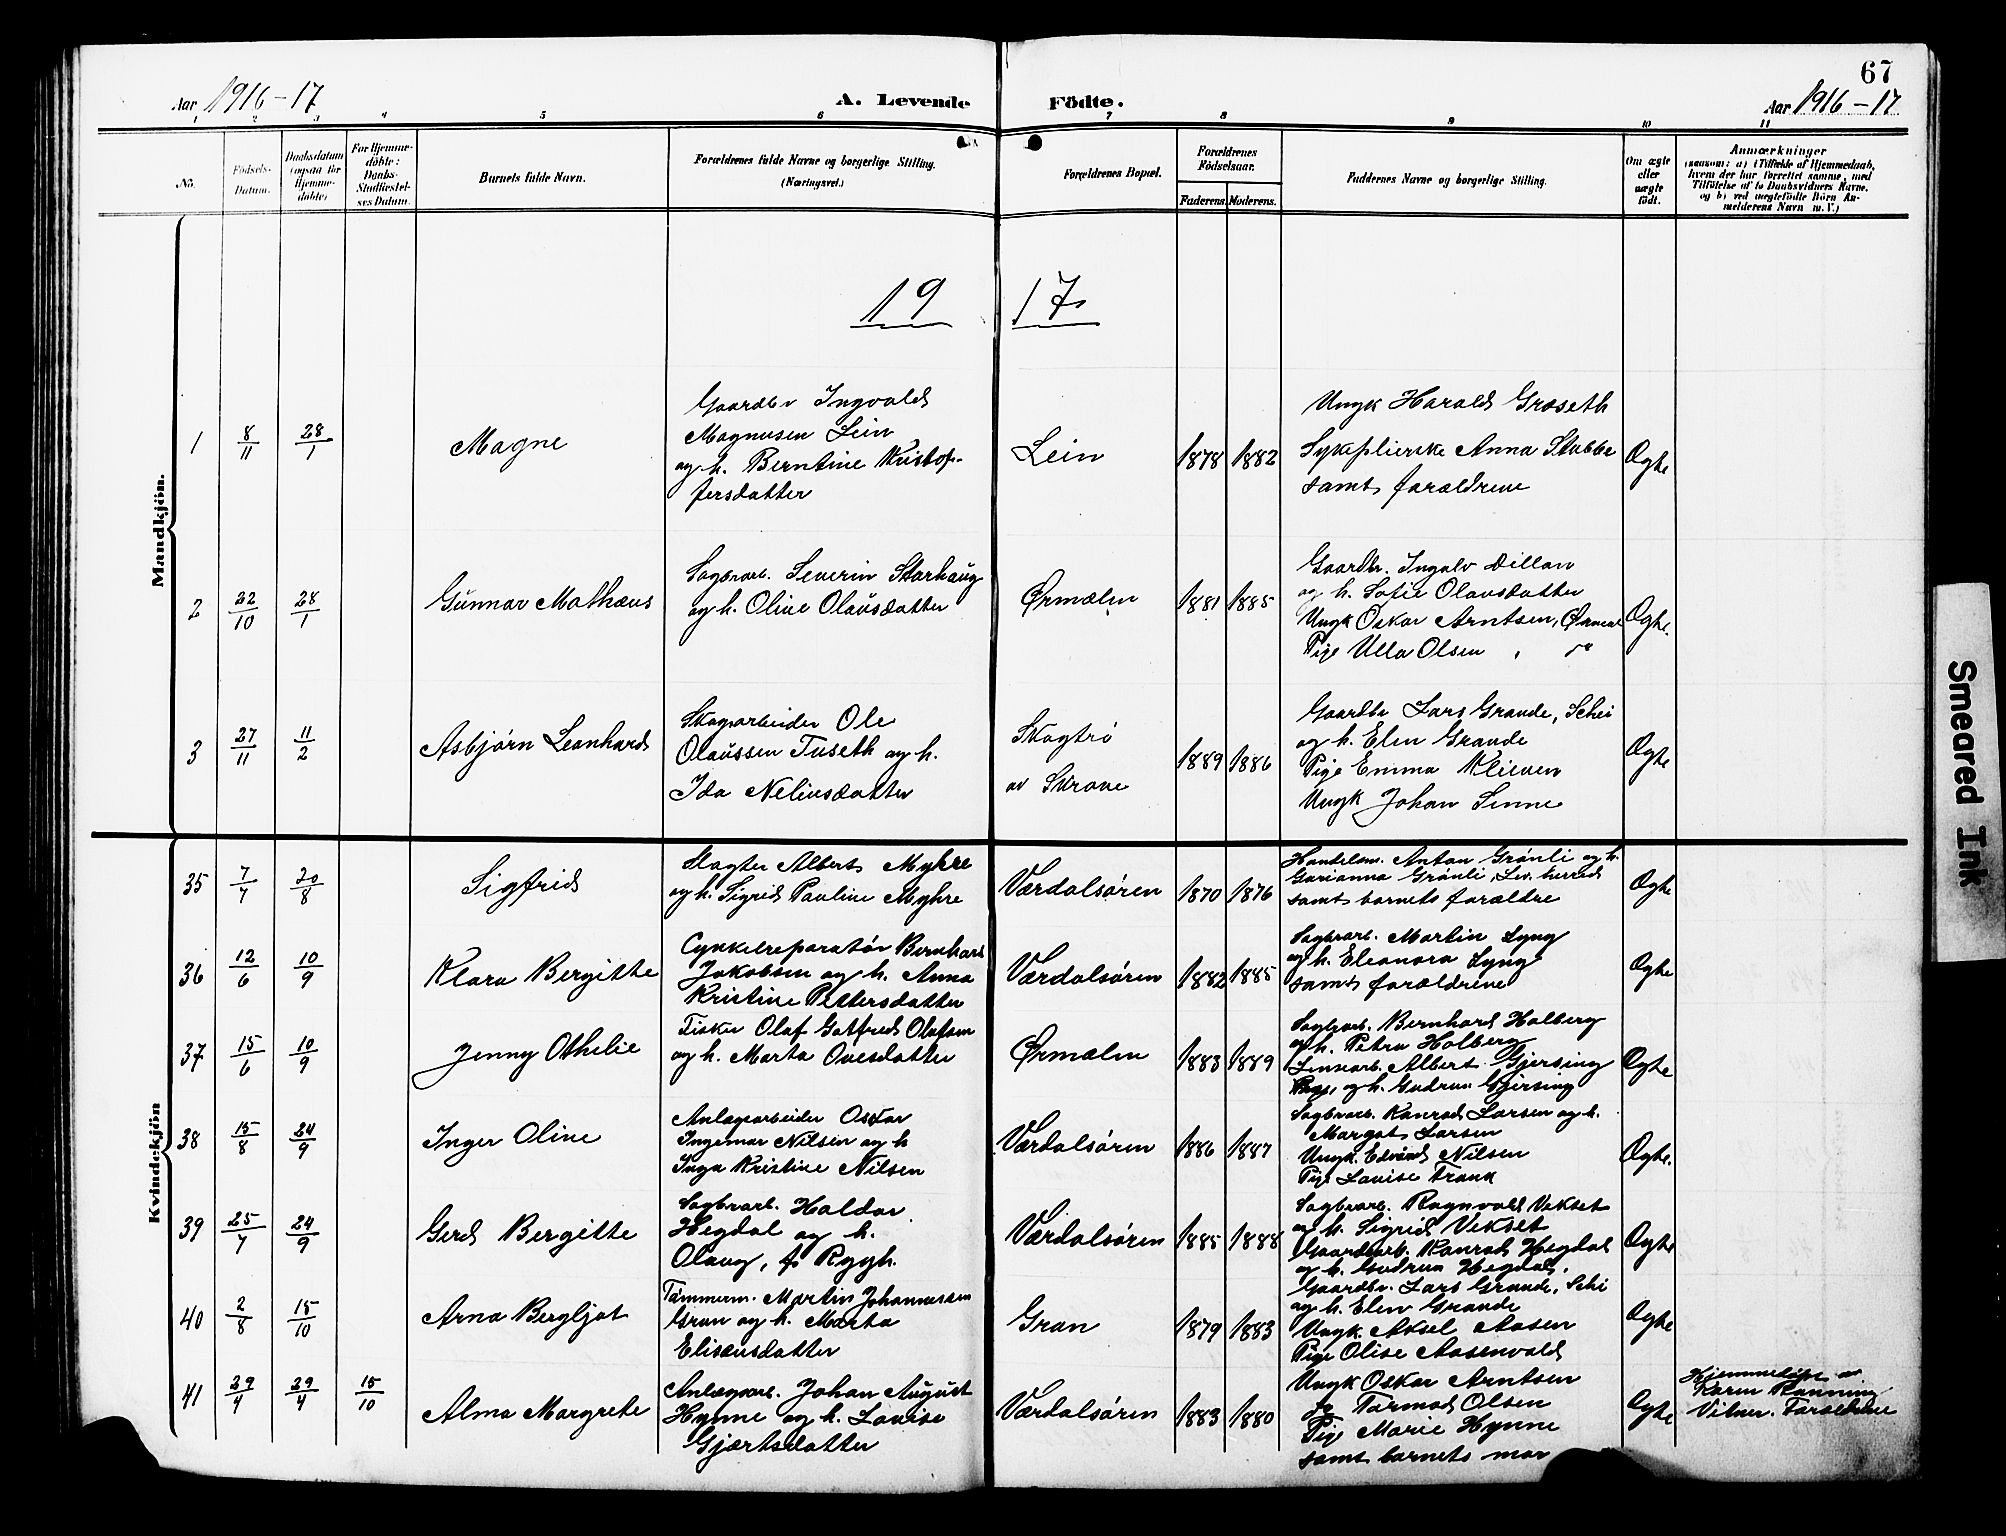 67
Aar 1916-17 A. Levende Födte. Aar 1916-17
1 2 3 4 5 6 7 8 9 10 11
No. Födsels-Datum. Daabsdatum (ogsaa for Hjemmedöbte) For Hjemmedöbte: Daabs-Stadfæstelses Datum. Barnets fulde Navn. Forældrenes fulde Navne og borgerlige Stilling. (Næringsvei.) Forældrenes Bopæl. Forældrenes Födselsaar. Faderens. Moderens. Faddernes Navne og borgerlige Stilling. Om ægte eller uægte födt. Anmærkninger (saasom: a) i Tilfælde af Hjemmedaab, hvem der har forrettet samme, med Tilföielse af to Daabsvidners Navne, og b) ved uægtefödte Börn Anmelderens Navn m. V.)
19 17
Mandkjön.
1 8/11 28/1 Magne
Gaardbr Ingvald
Magnusen Lein
og h. Berntine Kristof-
fersdatter
Lein 1878 1882
Ungk Harald Græseth
Sykepleierske Anna Stubbe
samt forældrene
Ægte
2 22/10 28/1 Gunnar Mathæus
Sagbrarb. Severin Storhaug
og h. Oline Olausdatter
Ørmælen 1881 1885
Gaardbr. Ingolv Dillan
og h. Sofie Olausdatter
Ungk Oskar Arntsen, Ørmæl
Pige Ulla Olsen "
Ægte.
3 27/11 11/2 Asbjørn Leonhard
Skogarbeider Ole
Olaussen Tuseth og h.
Ida Neliusdatter
Skogtrø
av Skrove
1889 1886
Gaardbr Lars Grande, Schei
og h. Elen Grande
Pige Emma Kleven
Ungk Johan Sinne
Ægte
Kvindekjön
35 7/7 20/8 Sigfrid
Slagter Albert Myhre
og h. Sigrid Pauline Myhre
Værdalsøren 1870 1876
Handelsm. Anton Grønli og h.
Garianna Grønli, Lev. herred
samt barnets forældre
Ægte
36 12/6 10/9 Klara Bergitte
Cykkelreparatør Bernhard
Jakobsen og h. Anna
Kristine Pettersdatter
Værdalsøren 1882 1885
Sagbrarb. Martin Lyng
og h. Eleonora Lyng
samt forældrene
Ægte
37 15/6 10/9 Jenny Othelie
Fisker Olaf Gotfred Olufsen
og h. Marta Ovesdatter
Ørmælen 1883 1889
Sagbrarb. Bernhard Holberg
og h. Petra Holberg
Linnearb. Albert Gjersing
og h. Gudrun Gjersing
Ægte
38 15/8 24/9 Inger Oline
Anlægsarbeider Oskar
Ingemar Nilsen og h
Inga Kristine Nilsen
Værdalsøren 1886 1887
Sagbrarb. Konrad Larsen og h.
Margot Larsen
Ungk. Edvard Nilsen
Pige Louise Frank
Ægte.
39 25/7 24/9 Gerd Bergitte
Sagbrarb. Haldor
Hegdal og h.
Olaug, f. Rygh.
Værdalsøren 1885 1888
Sagbrarb. Ragnvald Vekset
og h. Sigrid Vekset
Gaardarb. Konrad Hegdal
og h. Gudrun Hegdal.
Ægte
40 2/8 15/10 Arna Bergljot
Tømmerm. Martin Johannessen
Gran og h. Marta
Elisæusdatter
Gran 1879 1883
Gaardbr. Lars Grande, Schei
og h. Elen Grande
Ungk. Aksel Aasen
Pige Olise Aasenvald
Ægte
41 29/4 29/4 15/10 Alma Margrete
Anlægsarb. Johan August
Hynne og h. Louise
Gjærtsdatter
Værdalsøren 1883 1880
Ungk Oskar Arntsen
Tormod Olsen
Pige Marie Hynne
samt barnets mor
Ægte
Hjemmedøpt av
Karen Rønning
Vitner. Forældrene
Smeared Ink